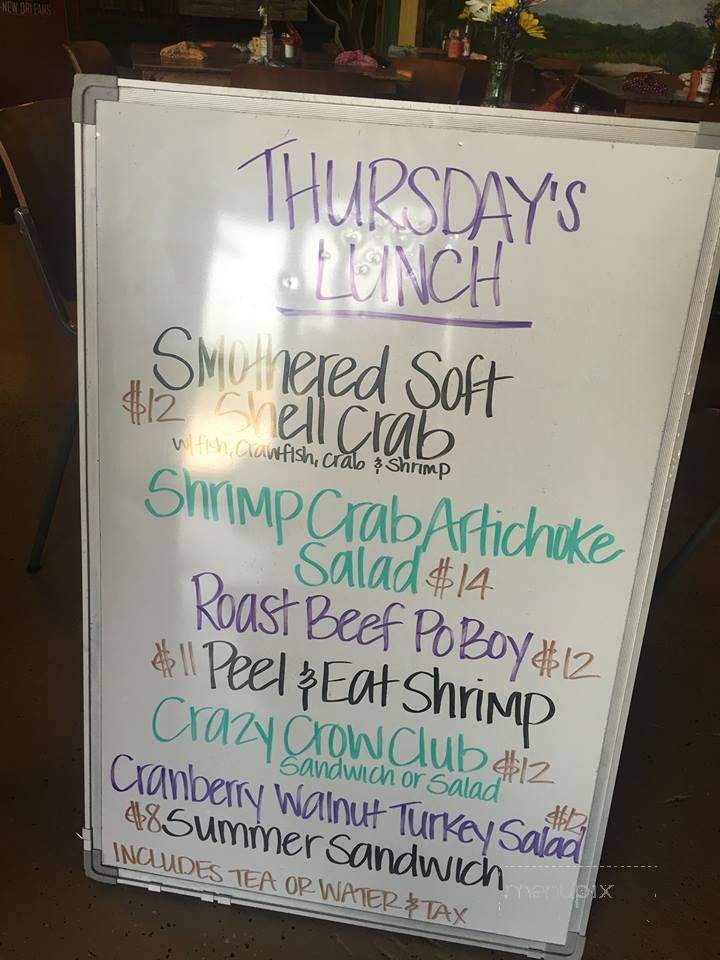 NEW ORLEANS
THURSDAY'S
LUNCH
Smothered Soft
$12 Shell Crab
w/ fish, Crawfish, Crab & Shrimp
Shrimp Crab Artichoke
Salad $14
Roast Beef PoBoy $12
$11 Peel & Eat Shrimp
Crazy Crow Club $12
Sandwich or Salad
Cranberry Walnut Turkey Salad $12
$8 Summer Sandwich
INCLUDES TEA OR WATER & TAX
menupix